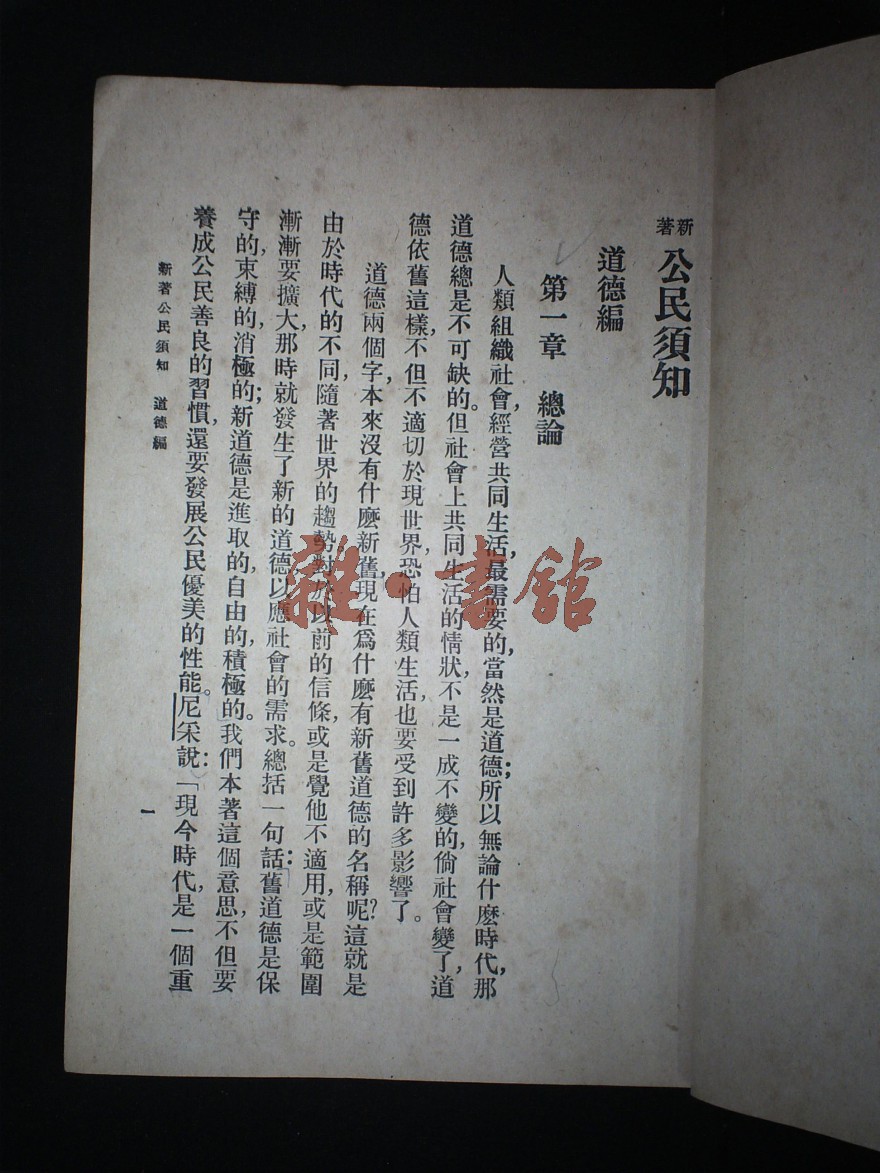 新著 公民須知
道德編
第一章 總論
人類組織社會，經營共同生活，最需要的，當然是道德；所以無論什麼時代，那
道德總是不可缺的。但社會上共同生活的情狀，不是一成不變的，倘社會變了，道
德依舊這樣，不但不適切於現世界，恐怕人類生活也要受到許多影響了。
道德兩個字，本來沒有什麼新舊，現在爲什麼有新舊道德的名稱呢？這就是
由於時代的不同，隨著世界的趨勢，對於以前的信條，或是覺他不適用，或是範圍
漸漸要擴大，那時就發生了新的道德，以應社會的需求。總括一句話：「舊道德是保
守的，束縛的，消極的；新道德是進取的，自由的，積極的。」我們本著這個意思，不但要
養成公民善良的習慣，還要發展公民優美的性能。尼采說：「現今時代，是一個重
新著公民須知 道德編
一
雜·書館